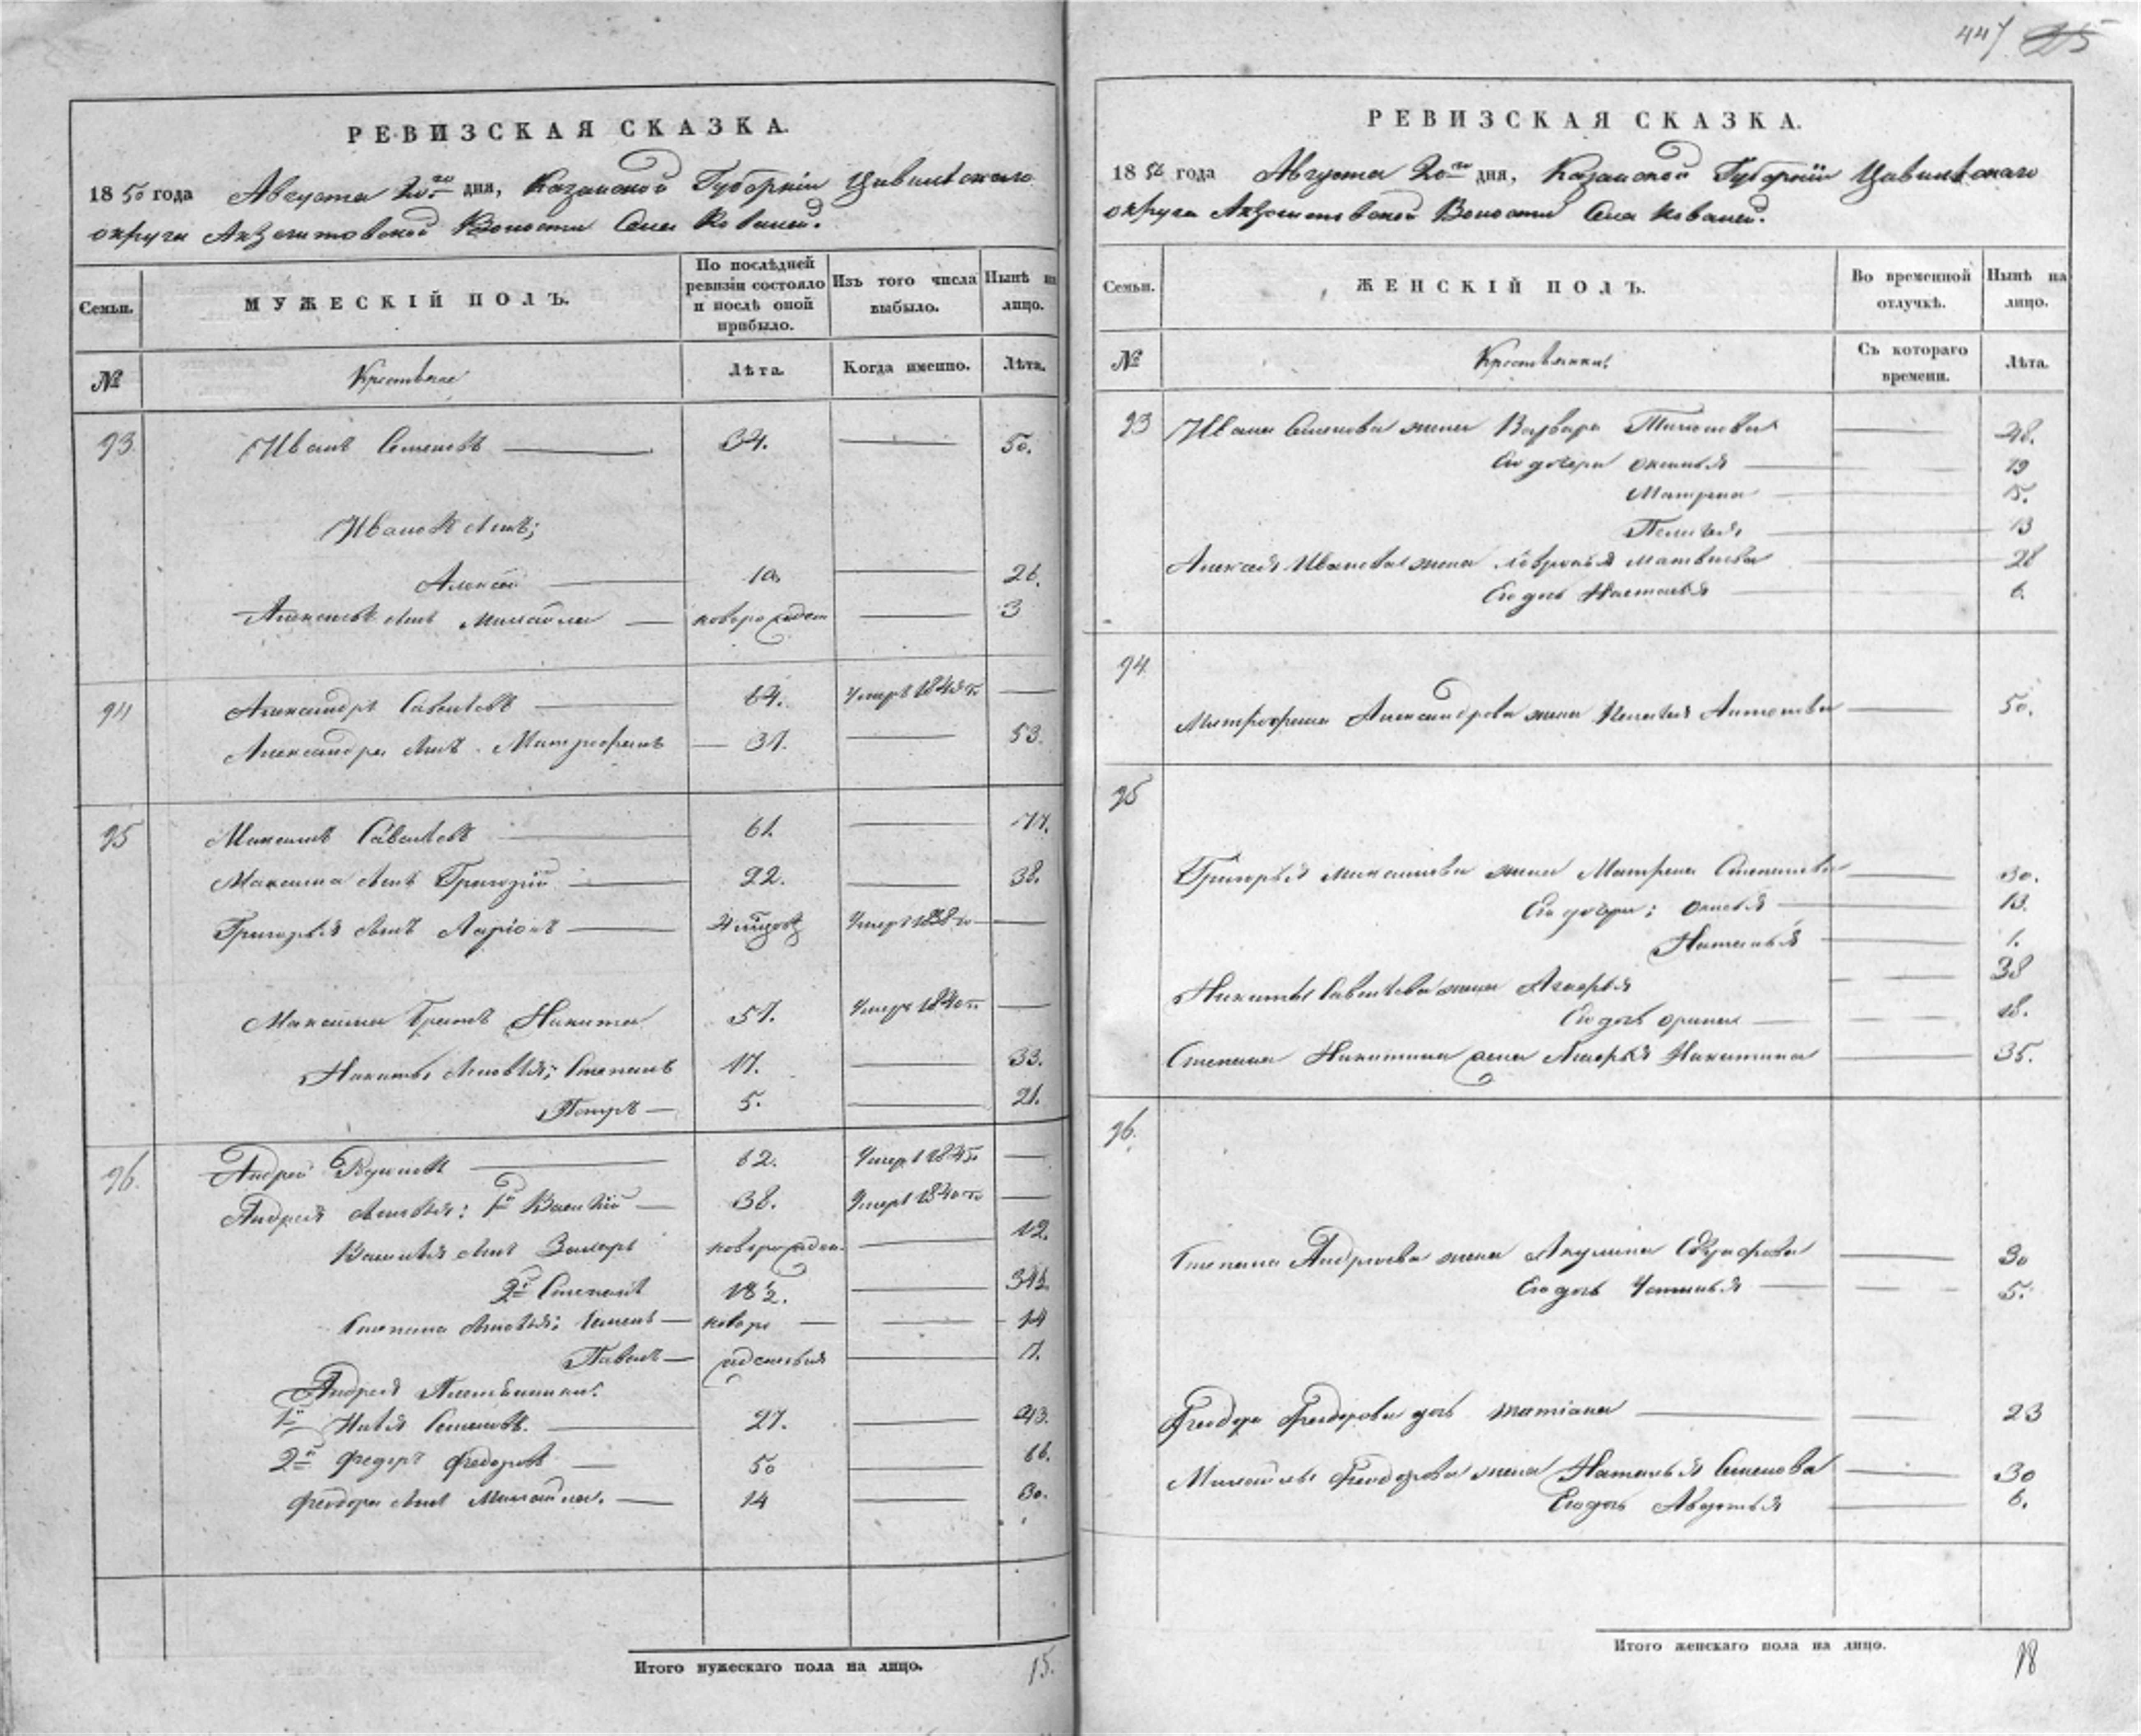 447 25
РЕВИЗСКАЯ СКАЗКА.
1850 года Августа 20го дня, Казанской Губерніи Цивильскаго
округа Волости Села Ковалей.
Семьи.
МУЖЕСКІЙ ПОЛЪ.
По послѣдней ревизіи состояло и послѣ оной прибыло.
Изъ того числа выбыло.
Нынѣ на лицо.
№
Крестьяне
Лѣта.
Когда именно.
Лѣта.
93 Иванъ Семеновъ 34. 50.
Алексѣй 10. 26.
Алексѣя сынъ Михайла новорожден 3
94 Александръ Савельевъ 64. Умеръ
Александра сынъ Митрофанъ 37. 53.
95 Максимъ Савельевъ 61. 77.
Максима сынъ Григорій 22. 38.
Григорья сынъ Ларіонъ Умеръ 1838го
Максима братъ Никита 57. Умеръ 1840го
Никиты сыновья: Степанъ 17. 33.
Петръ 5. 21.
96. Андрей 62. Умеръ
Андрея сыновья: 1й Василій 38. Умеръ 1840го
Василья сынъ Захаръ новорожден. 12.
2й Степанъ 18 1/2. 34 1/2.
Степана сыновья: Семенъ ново 14
Павелъ рожденныя 7.
Андрея Племянники:
1й Илья Семеновъ. 27. 43.
2й Федоръ Федоровъ 50 66.
Феодора сынъ Михайла. 14 30.
Итого мужескаго пола на лицо. 15.
РЕВИЗСКАЯ СКАЗКА.
1850 года Августа 20го дня, Казанской Губерніи Цивильскаго
округа Волости Села Ковалей.
Семьи.
ЖЕНСКІЙ ПОЛЪ.
Во временной отлучкѣ.
Нынѣ на лицо.
№
Крестьянки.
Съ котораго времени.
Лѣта.
93 Ивана Семенова жена Варвара 48.
Его дочери 19
Матрена 15.
Пелагея 13
Алексѣя Иванова жена Матвѣева 28
Его дочь Настасья 6.
94.
Митрофана Александрова жена Пелагея Антонова 50.
95
Григорья Максимова жена Матрена Степанова 30.
Его дочери: 13.
Наталья 1.
Никиты Савельева жена 38
Его дочь Орина 18.
Степана Никитина жена Никитина 35.
96.
Степана Андреева жена Акулина 30
Его дочь Устинья 5.
Феодора Феодорова дочь Татіана 23
Михайлы Феодорова жена Наталья Семенова 30
Его дочь Авдотья 6.
Итого женскаго пола на лицо. 18